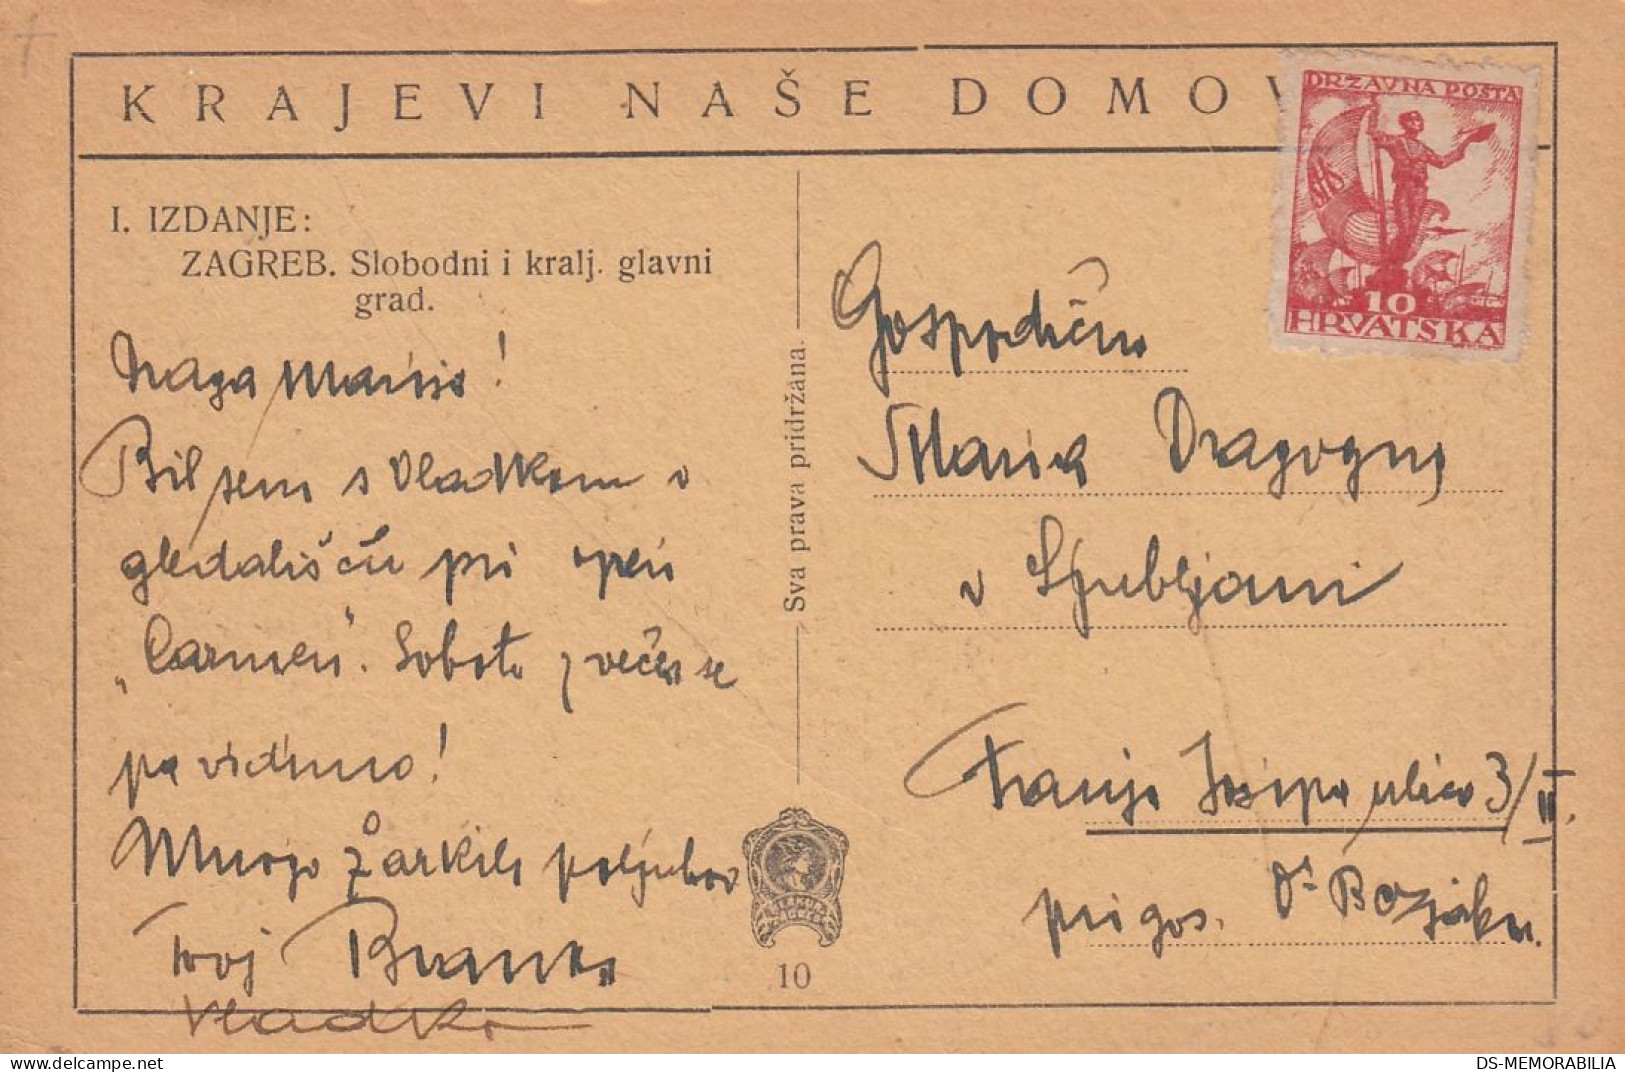 KRAJEVI NAŠE DOMOV
DRZAVNA POSTA
SHS
10
HRVATSKA
I. IZDANJE:
ZAGREB. Slobodni i kralj. glavni
grad.
Draga Marija!
Bil sem s Vladkom v
gledališču pri operi
„Carmen". Soboto zvečer se
pa vidimo!
Mnogo žarkih poljubov
Tvoj Branko
Vladko
Sva prava pridržana.
10
Gospodična
Marica Dragogna
v Ljubljani
Franja Josipa ulica 3/II.
pri gos. Dr